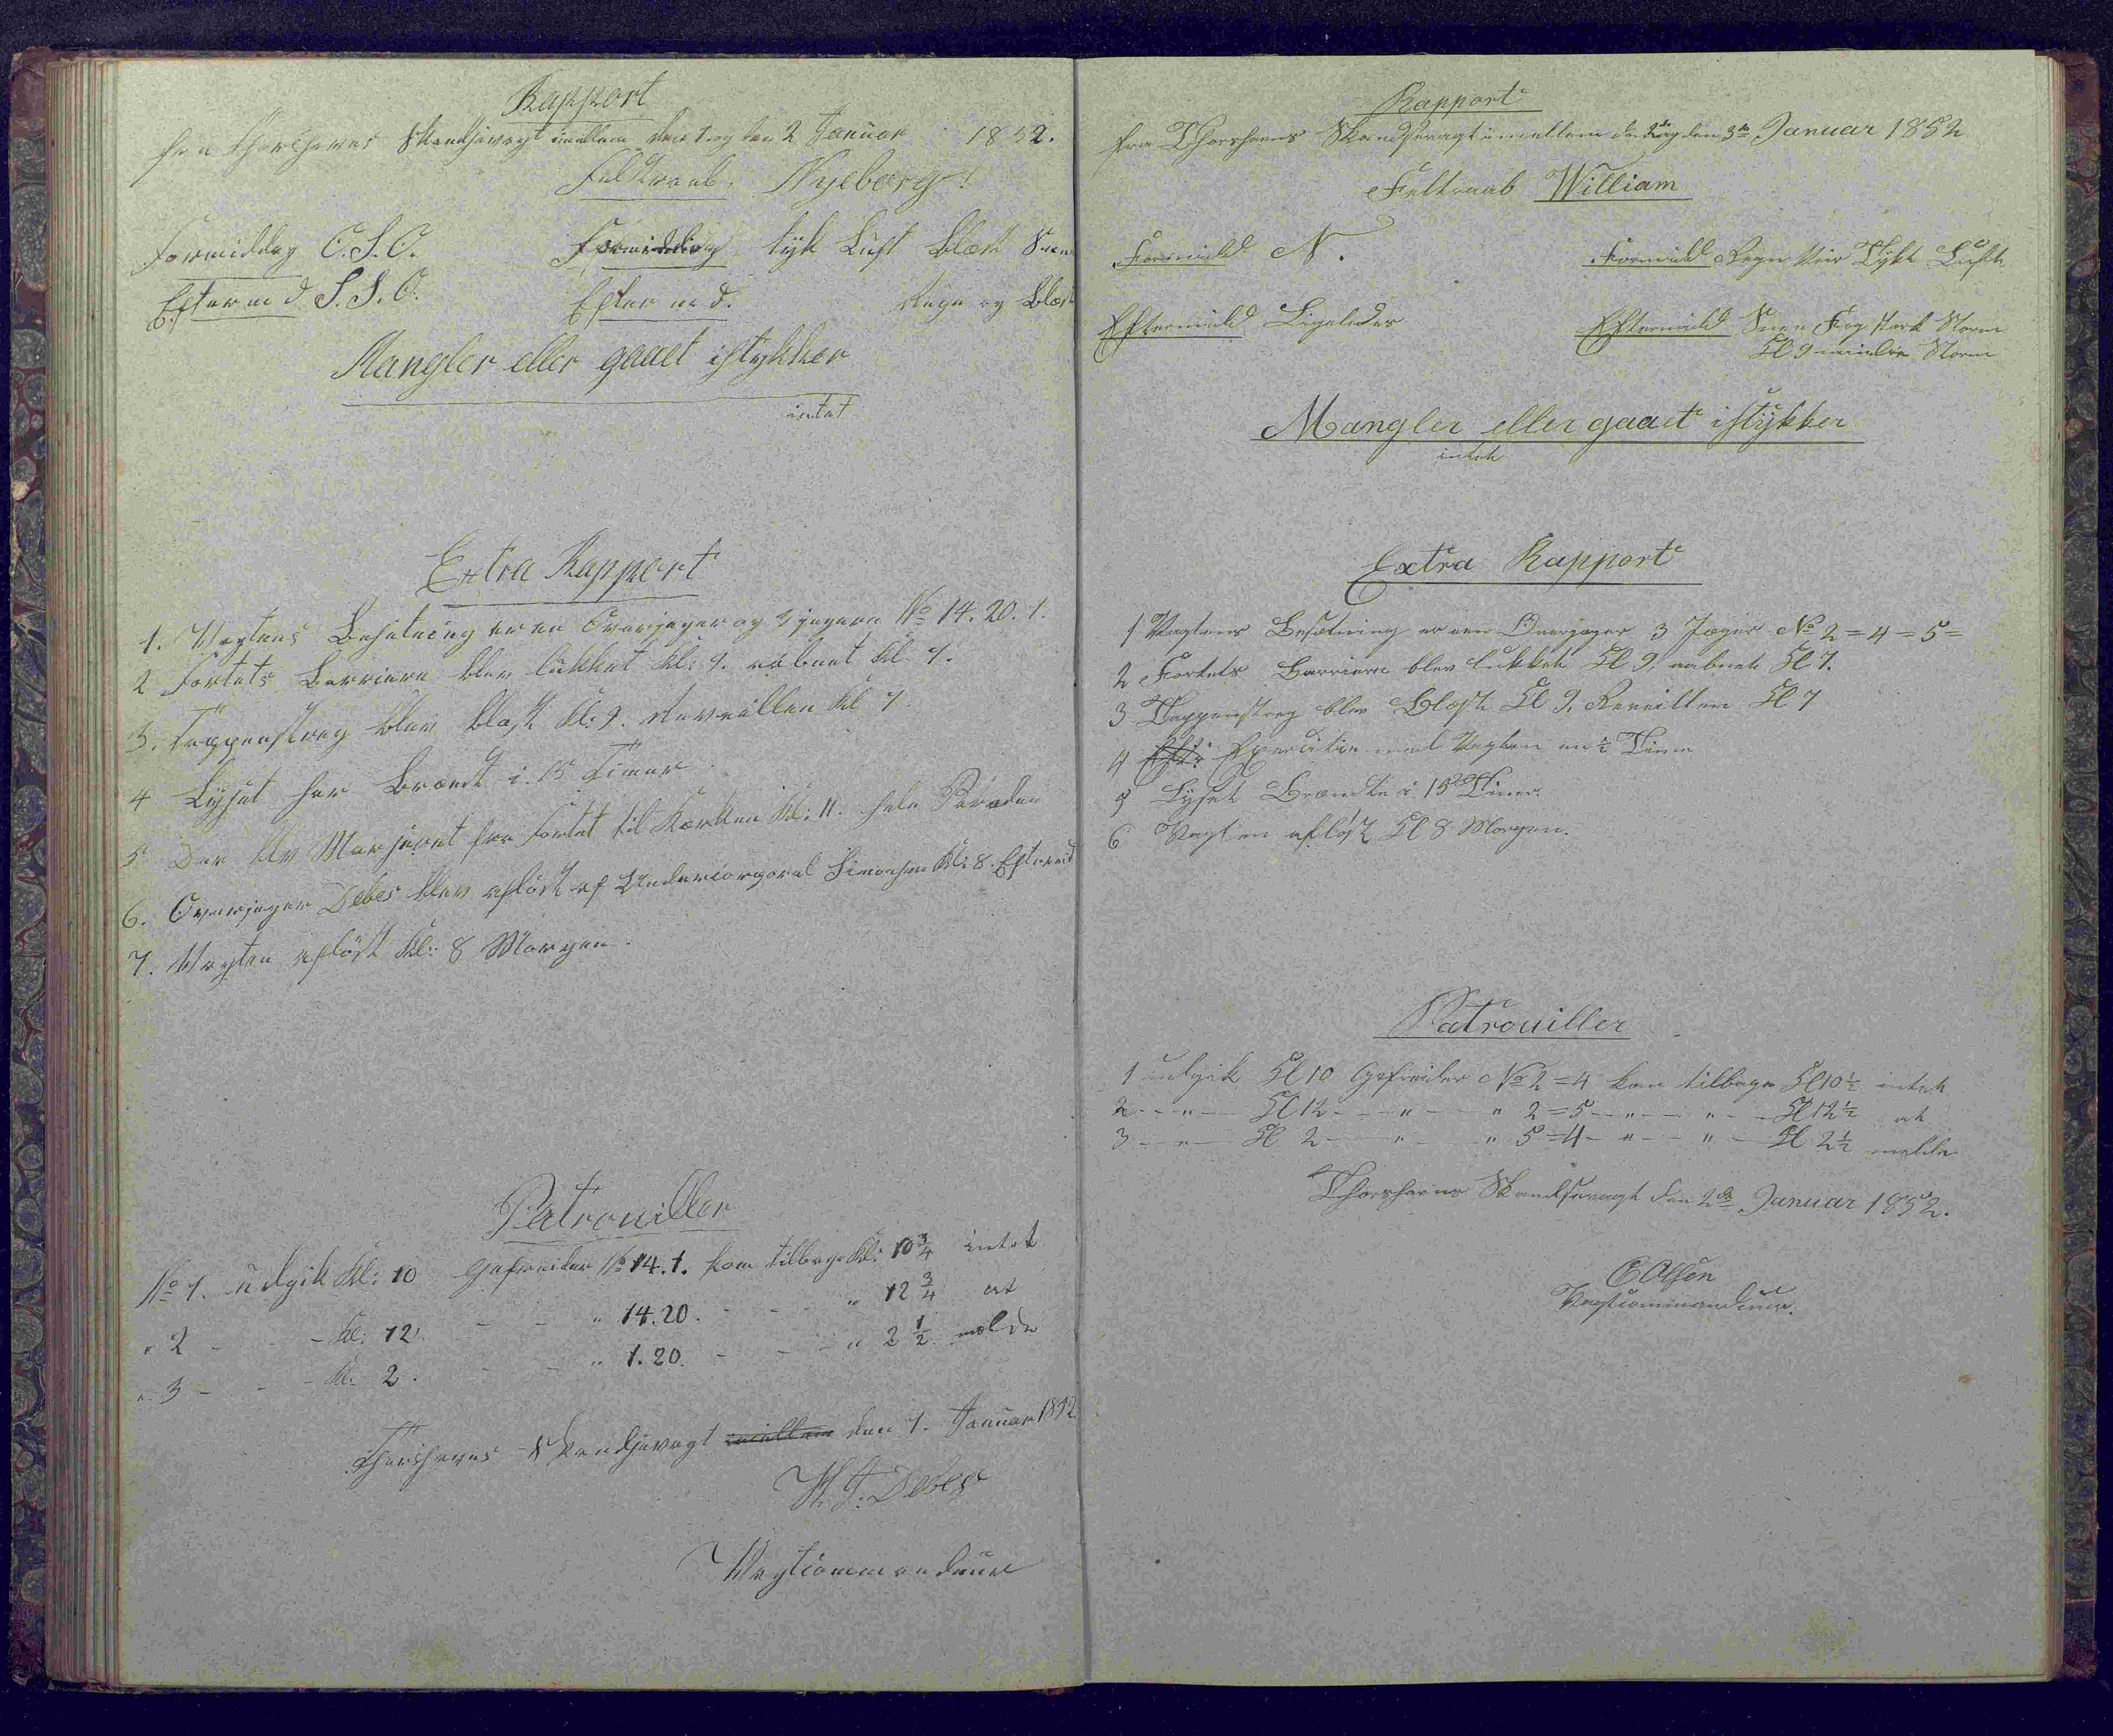 Rapport
fra Thorshavns Skandsevagt imellem den 1 og den 2 Januar 1852.
Feltraab. Nyeborg!
Formiddag O.S.O. Formiddag tyk Luft blæst Snee
Efterm d. S.S.O. Efter m d. Regn og Blæst
Mangler eller gaaet istykker
intet
Extra Rapport
1. Vagtens Besætning er en Overjæger og 3 jægere No 14. 20. 1.
2 Fortets Barriere blev lukket Kl: 9. aabnet Kl. 7.
3. Tappenstreg blev blæst Kl: 9. Reveillen Kl 7
4 Lyset har Brændt i 15 Timer
5 Der blev Marjeret fra Fortet til Kirken Kl: 11. hele Paraden
6. Overjæger Debes blev afløst af Undercorporal Simonsen Kl: 8. Eftermid
7. Vagten afløst Kl: 8 Morgen.
Patrouiller
No 1. udgik Kl: 10 Gefreider No 14. 1. kom tilbage Kl: 10 3/4 intet
" 2 - - - Kl: 12. - - " 14. 20. - - - " 12 3/4 at
" 3 - - - Kl. 2. - - " 1. 20. - - - " 2 1/2 melde
Thorshavns Skandsevagt imellem den 1. Januar 1852.
H. J. Debes
Vagtcommandeur
Rapport
fra Thorshavns Skandsevagt imellem den 2de og den 3die Januar 1852
Feltraab William
Formidd N. Formidd Regn Veir Tykt Luft
Eftermidd Ligeledes Eftermidd Snee Fog stærk Storm
Kl 9 mindre Storm
Mangler eller gaaet istykker
intet
Extra Rapport
1 Vagtens Besætning er een Overjæger 3 Jæger No 2 = 4 = 5 =
2 Fortets Barriere blev lukket Kl 9, aabnet Kl 7.
3 Tappenstreg blev Blæst Kl 9. Reveillen Kl 7
4 Exercitie med Vagten en 1/2 Time
5 Lyset Brændte i 15 Timer.
6 Vagten afløst Kl 8 Morgen.
Patrouiller
1 udgik Kl 10 Gefreider No 2 = 4 kom tilbage Kl 10 1/2 intet
2 - - " - Kl 12 - - " - " 2 = 5 - " - - " - - Kl 12 1/2 at
3 - - " - Kl 2 - - " - " 5 = 4 - " - - " - Kl 2 1/2 melde
Thorshavns Skandsevagt den 2de Januar 1852.
C Olsen
Vagtcommandeur.